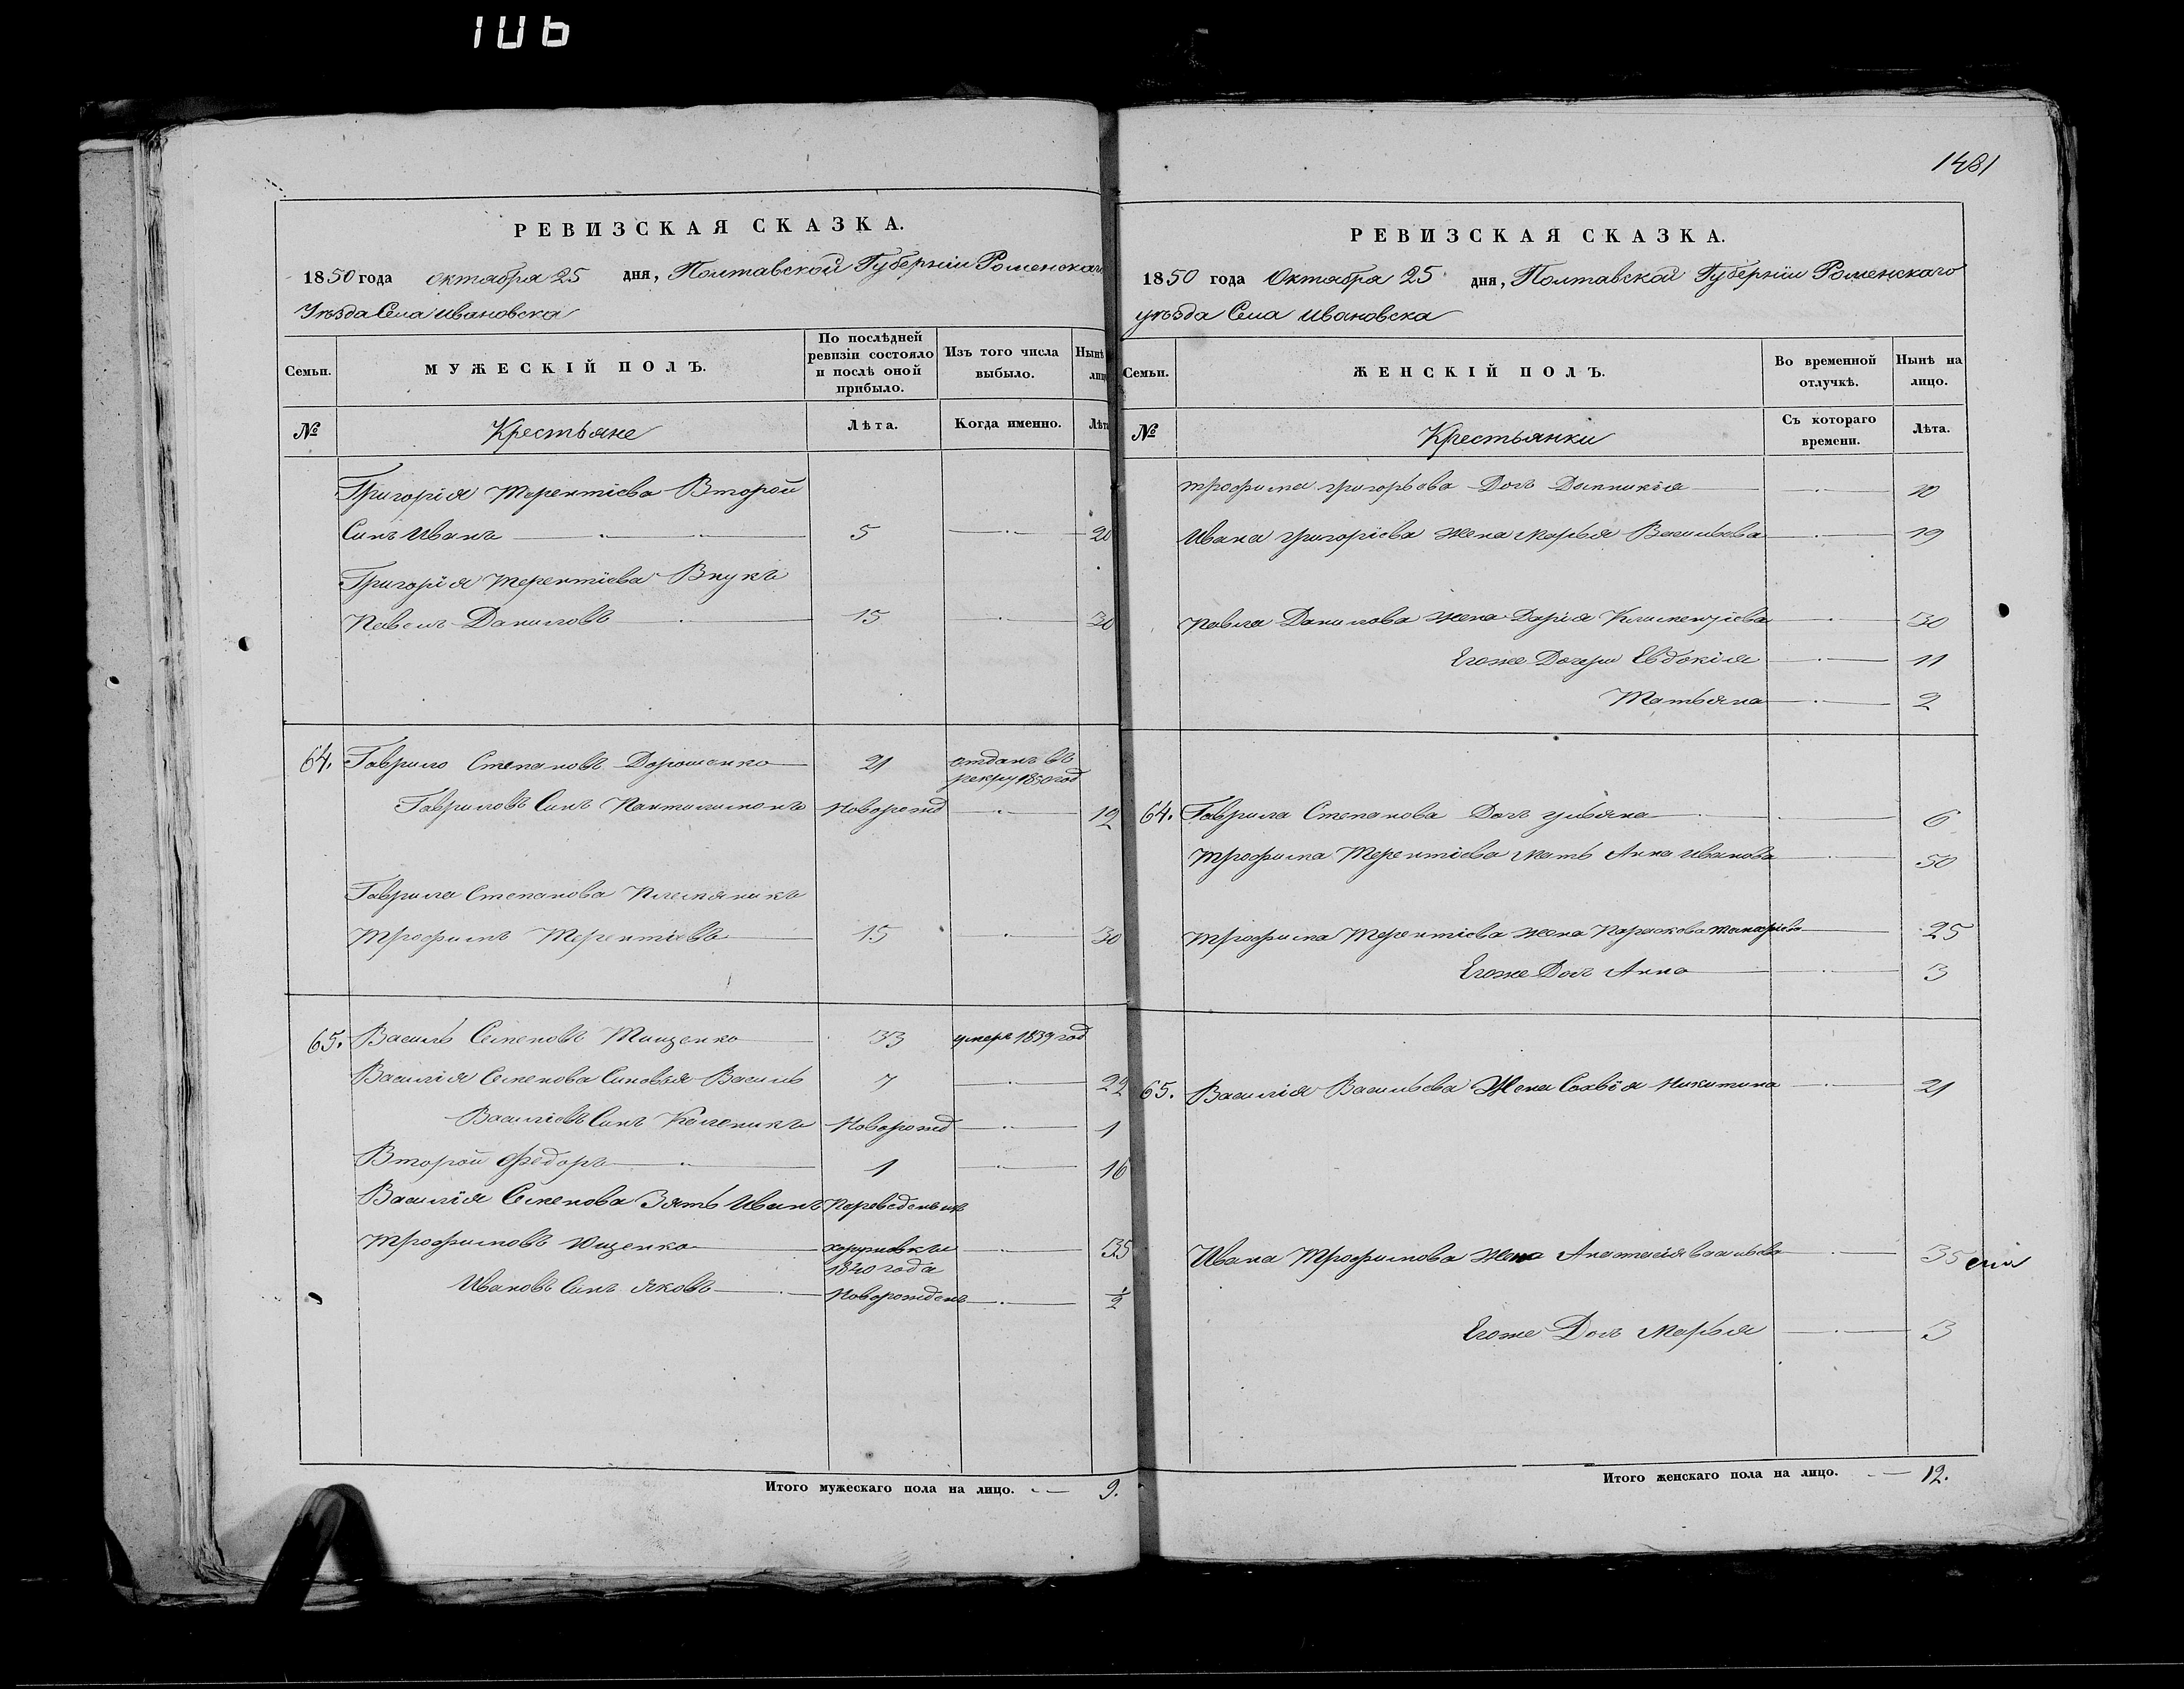 106
1481
РЕВИЗСКАЯ СКАЗКА.
1850 года октября 25 дня, Полтавской Губерніи Роменскаго
Уѣзда Села Ивановска
Семьи. МУЖЕСКІЙ ПОЛЪ. По послѣдней ревизіи состояло и послѣ оной прибыло. Изъ того числа выбыло. Нынѣ
№ Крестьяне Лѣта. Когда именно. Лѣта
Григорія Терентіева Второй
Синъ Иванъ 5 20
Григорія Терентіева Внукъ
Павелъ Даниловъ 15 30
64. Гаврило Степановъ Дорошенко 21 отданъ въ
рекру 1850 год
Гавриловъ Синъ Пантилимонъ Новорожд 12
Гаврила Степанова Племяникъ
Трофимъ Терентіевъ 15 30
65. Василь Семеновъ Тищенко 33 умеръ 1839 год
Василія Семенова Синовья Василь 7 22
Василіевъ Синъ Келеникъ Новорожд 1
Второй Федоръ 1 16
Василія Семенова Зять Иванъ Переведенъ изъ
Трофимовъ Ющенко 35
1840 года
Ивановъ Синъ Яковъ Новорожденъ ½
Итого мужескаго пола на лицо. 9.
РЕВИЗСКАЯ СКАЗКА.
1850 года Октября 25 дня, Полтавской Губерніи Роменскаго
уѣзда Села Ивановска
Семьи. ЖЕНСКІЙ ПОЛЪ. Во временной отлучкѣ. Нынѣ на лицо.
№ Крестьянки Съ котораго времени. Лѣта.
Трофима Григорьева Доч 10
Ивана Григоріева жена Марья Васильева 19
Павла Данилова жена Дарія Климентіева 30
Егоже Дочери Евдокія 11
Татьяна 2
64. Гаврила Степанова Доч Ульяна 6
Трофима Терентіева мать Анна Иванова 50
Трофима Терентіева жена Парасковя 25
Егоже Доч Анна 3
65. Василія Васильева Жена Софія Никитина 21
Ивана Трофимова жена Анастасія Васильева 35
Егоже Доч Марья 3
Итого женскаго пола на лицо. 12.